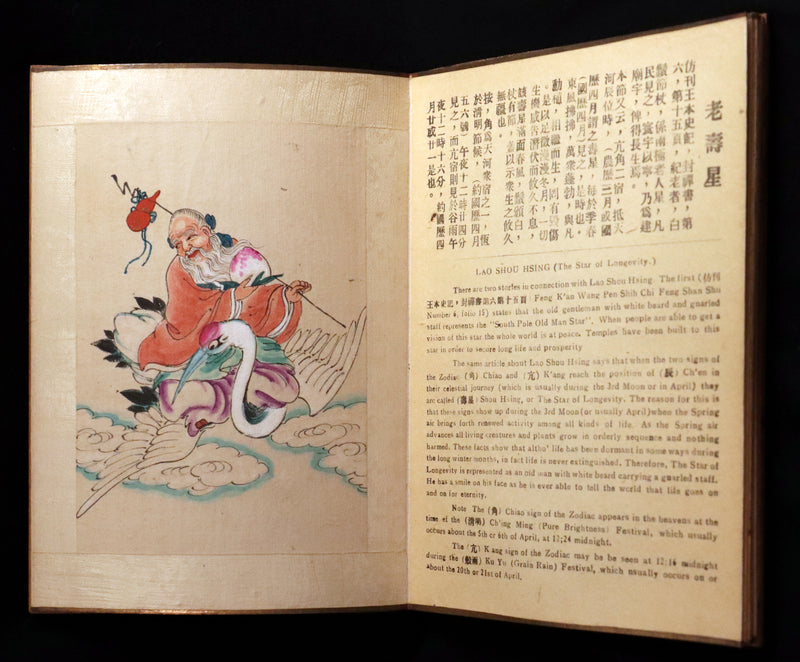 老壽星
仿刊王本史記，封禪書，第
六，第十五頁，紀老者，白
鬚節杖，係南極老人星，凡
民見之，寰宇以寧，乃爲建
廟宇，俾得長生焉。
本節又云，亢角二宿，抵天
河辰位時，（農歷三月或國
歷四月謂之壽星，每於季春
（國歷四月）見之，是時也。
東風拂拂，萬衆蓬勃，與凡
動植，相繼而生，罔有傷
。是以足徵漫漫冬月，一切
生機咸告潛伏而攸久不息，
該壽星滿面春風，鬚頒白，
杖有節，蓋以示衆生之攸久
無疆也。
按，角爲天河衆宿之一，恆
於清明節候，（約國歷四月
五六號）午夜十二時廿四分
見之，而亢宿則見於谷雨午
夜十二時十六分，約國歷四
月廿或廿一是也。
LAO SHOU HSING (The Star of Longevity.)
There are two stories in connection with Lao Shou Hsing. The first (仿刊
王本史記，封禪書第六第十五頁) Feng K'an Wang Pen Shih Chi Feng Shan Shu
Number 6, folio 15) states that the old gentleman with white beard and gnarled
staff represents the "South Pole Old Man Star". When people are able to get a
vision of this star the whole world is at peace. Temples have been built to this
star in order to secure long life and prosperity
The same article about Lao Shou Hsing says that when the two signs of
the Zodiac (角) Chiao and (亢) K'ang reach the position of (辰) Ch'en in
their celestial journey (which is usually during the 3rd Moon or in April) they
are called (壽星) Shou Hsing, or The Star of Longevity. The reason for this is
that these signs show up during the 3rd Moon (or usually April) when the Spring
air brings forth renewed activity among all kinds of life. As the Spring air
advances all living creatures and plants grow in orderly sequence and nothing
harmed. These facts show that altho' life has been dormant in some ways during
the long winter months, in fact life is never extinguished. Therefore, The Star of
Longevity is represented as an old man with white beard carrying a gnarled staff.
He has a smile on his face as he is ever able to tell the world that life goes on
and on for eternity.
Note The (角) Chiao sign of the Zodiac appears in the heavens at the
time of the (清明) Ch'ing Ming (Pure Brightness) Festival, which usually
occurs about the 5th or 6th of April, at 12;24 midnight.
The (亢) K ang sign of the Zodiac may be be seen at 12:16 midnight
during the (穀雨) Ku Yu (Grain Rain) Festival, which usually occurs on or
about the 20th or 21st of April.